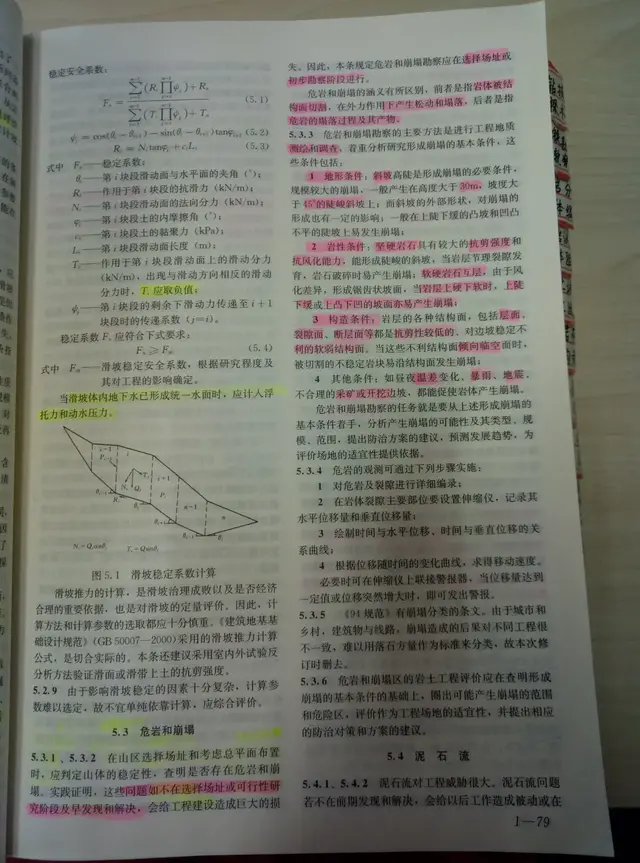 稳定安全系数:
(5.1)
ψⱼ=cos(θᵢ−θᵢ₊₁)−sin(θᵢ−θᵢ₊₁)tanφᵢ₊₁ (5.2)
Rᵢ=Nᵢtanφᵢ+cᵢLᵢ (5.3)
式中 Fₛ——稳定系数;
θᵢ——第i块段滑动面与水平面的夹角(°);
Rᵢ——作用于第i块段的抗滑力(kN/m);
Nᵢ——第i块段滑动面的法向分力(kN/m);
φᵢ——第i块段土的内摩擦角(°);
cᵢ——第i块段土的黏聚力(kPa);
Lᵢ——第i块段滑动面长度(m);
Tᵢ——作用于第i块段滑动面上的滑动分力
(kN/m),出现与滑动方向相反的滑动
分力时,Tᵢ应取负值;
ψⱼ——第i块段的剩余下滑动力传递至i+1
块段时的传递系数(j=i)。
稳定系数Fₛ应符合下式要求:
Fₛ≥Fₛₜ (5.4)
式中 Fₛₜ——滑坡稳定安全系数,根据研究程度及
其对工程的影响确定。
当滑坡体内地下水已形成统一水面时,应计入浮
托力和动水压力。
Nᵢ=Qᵢcosθᵢ Tᵢ=Qᵢsinθᵢ
图5.1 滑坡稳定系数计算
滑坡推力的计算,是滑坡治理成败以及是否经济
合理的重要依据,也是对滑坡的定量评价。因此,计
算方法和计算参数的选取都应十分慎重。《建筑地基基
础设计规范》(GB 50007—2000)采用的滑坡推力计算
公式,是切合实际的。本条还建议采用室内外试验反
分析方法验证滑面或滑带上土的抗剪强度。
5.2.9 由于影响滑坡稳定的因素十分复杂,计算参
数难以选定,故不宜单纯依靠计算,应综合评价。
5.3 危岩和崩塌
5.3.1、5.3.2 在山区选择场址和考虑总平面布置
时,应判定山体的稳定性,查明是否存在危岩和崩
塌。实践证明,这些问题如不在选择场址或可行性研
究阶段及早发现和解决,会给工程建设造成巨大的损
失。因此,本条规定危岩和崩塌勘察应在选择场址或
初步勘察阶段进行。
危岩和崩塌的涵义有所区别,前者是指岩体被结
构面切割,在外力作用下产生松动和塌落,后者是指
危岩的塌落过程及其产物。
5.3.3 危岩和崩塌勘察的主要方法是进行工程地质
测绘和调查,着重分析研究形成崩塌的基本条件,这
些条件包括:
1 地形条件:斜坡高陡是形成崩塌的必要条件,
规模较大的崩塌,一般产生在高度大于30m,坡度大
于45°的陡峻斜坡上;而斜坡的外部形状,对崩塌的
形成也有一定的影响;一般在上陡下缓的凸坡和凹凸
不平的陡坡上易发生崩塌;
2 岩性条件:坚硬岩石具有较大的抗剪强度和
抗风化能力,能形成陡峻的斜坡,当岩层节理裂隙发
育,岩石破碎时易产生崩塌;软硬岩石互层,由于风
化差异,形成锯齿状坡面,当岩层上硬下软时,上陡
下缓或上凸下凹的坡面亦易产生崩塌;
3 构造条件:岩层的各种结构面,包括层面、
裂隙面、断层面等都是抗剪性较低的、对边坡稳定不
利的软弱结构面。当这些不利结构面倾向临空面时,
被切割的不稳定岩块易沿结构面发生崩塌;
4 其他条件:如昼夜温差变化、暴雨、地震、
不合理的采矿或开挖边坡,都能促使岩体产生崩塌。
危岩和崩塌勘察的任务就是要从上述形成崩塌的
基本条件着手,分析产生崩塌的可能性及其类型、规
模、范围,提出防治方案的建议,预测发展趋势,为
评价场地的适宜性提供依据。
5.3.4 危岩的观测可通过下列步骤实施:
1 对危岩及裂隙进行详细编录;
2 在岩体裂隙主要部位要设置伸缩仪,记录其
水平位移量和垂直位移量;
3 绘制时间与水平位移、时间与垂直位移的关
系曲线;
4 根据位移随时间的变化曲线,求得移动速度。
必要时可在伸缩仪上联接警报器,当位移量达到
一定值或位移突然增大时,即可发出警报。
5.3.5 《94规范》有崩塌分类的条文。由于城市和
乡村,建筑物与线路,崩塌造成的后果对不同工程很
不一致,难以用落石方量作为标准来分类,故本次修
订时删去。
5.3.6 危岩和崩塌区的岩土工程评价应在查明形成
崩塌的基本条件的基础上,圈出可能产生崩塌的范围
和危险区,评价作为工程场地的适宜性,并提出相应
的防治对策和方案的建议。
5.4 泥石流
5.4.1、5.4.2 泥石流对工程威胁很大。泥石流问题
若不在前期发现和解决,会给以后工作造成被动或在
1—79